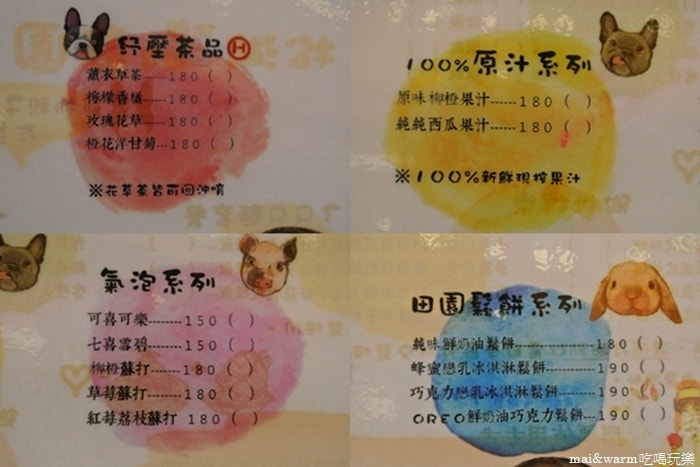 紓壓茶品 H
薰衣草茶-----180 ( )
檸檬香橘-----180 ( )
玫瑰花草-----180 ( )
橙花洋甘菊---180 ( )
※花草茶皆可回沖唷
100%原汁系列
原味柳橙果汁------180 ( )
純純西瓜果汁------180 ( )
※100%新鮮現榨果汁
氣泡系列
可喜可樂--------150 ( )
七喜雪碧--------150 ( )
柳橙蘇打--------180 ( )
草莓蘇打--------180 ( )
紅莓荔枝蘇打 180 ( )
田園鬆餅系列
純味鮮奶油鬆餅----------------180 ( )
蜂蜜戀乳冰淇淋鬆餅---------190 ( )
巧克力戀乳冰淇淋鬆餅------190 ( )
OREO鮮奶油巧克力鬆餅---190 ( )
mai&warm吃喝玩樂